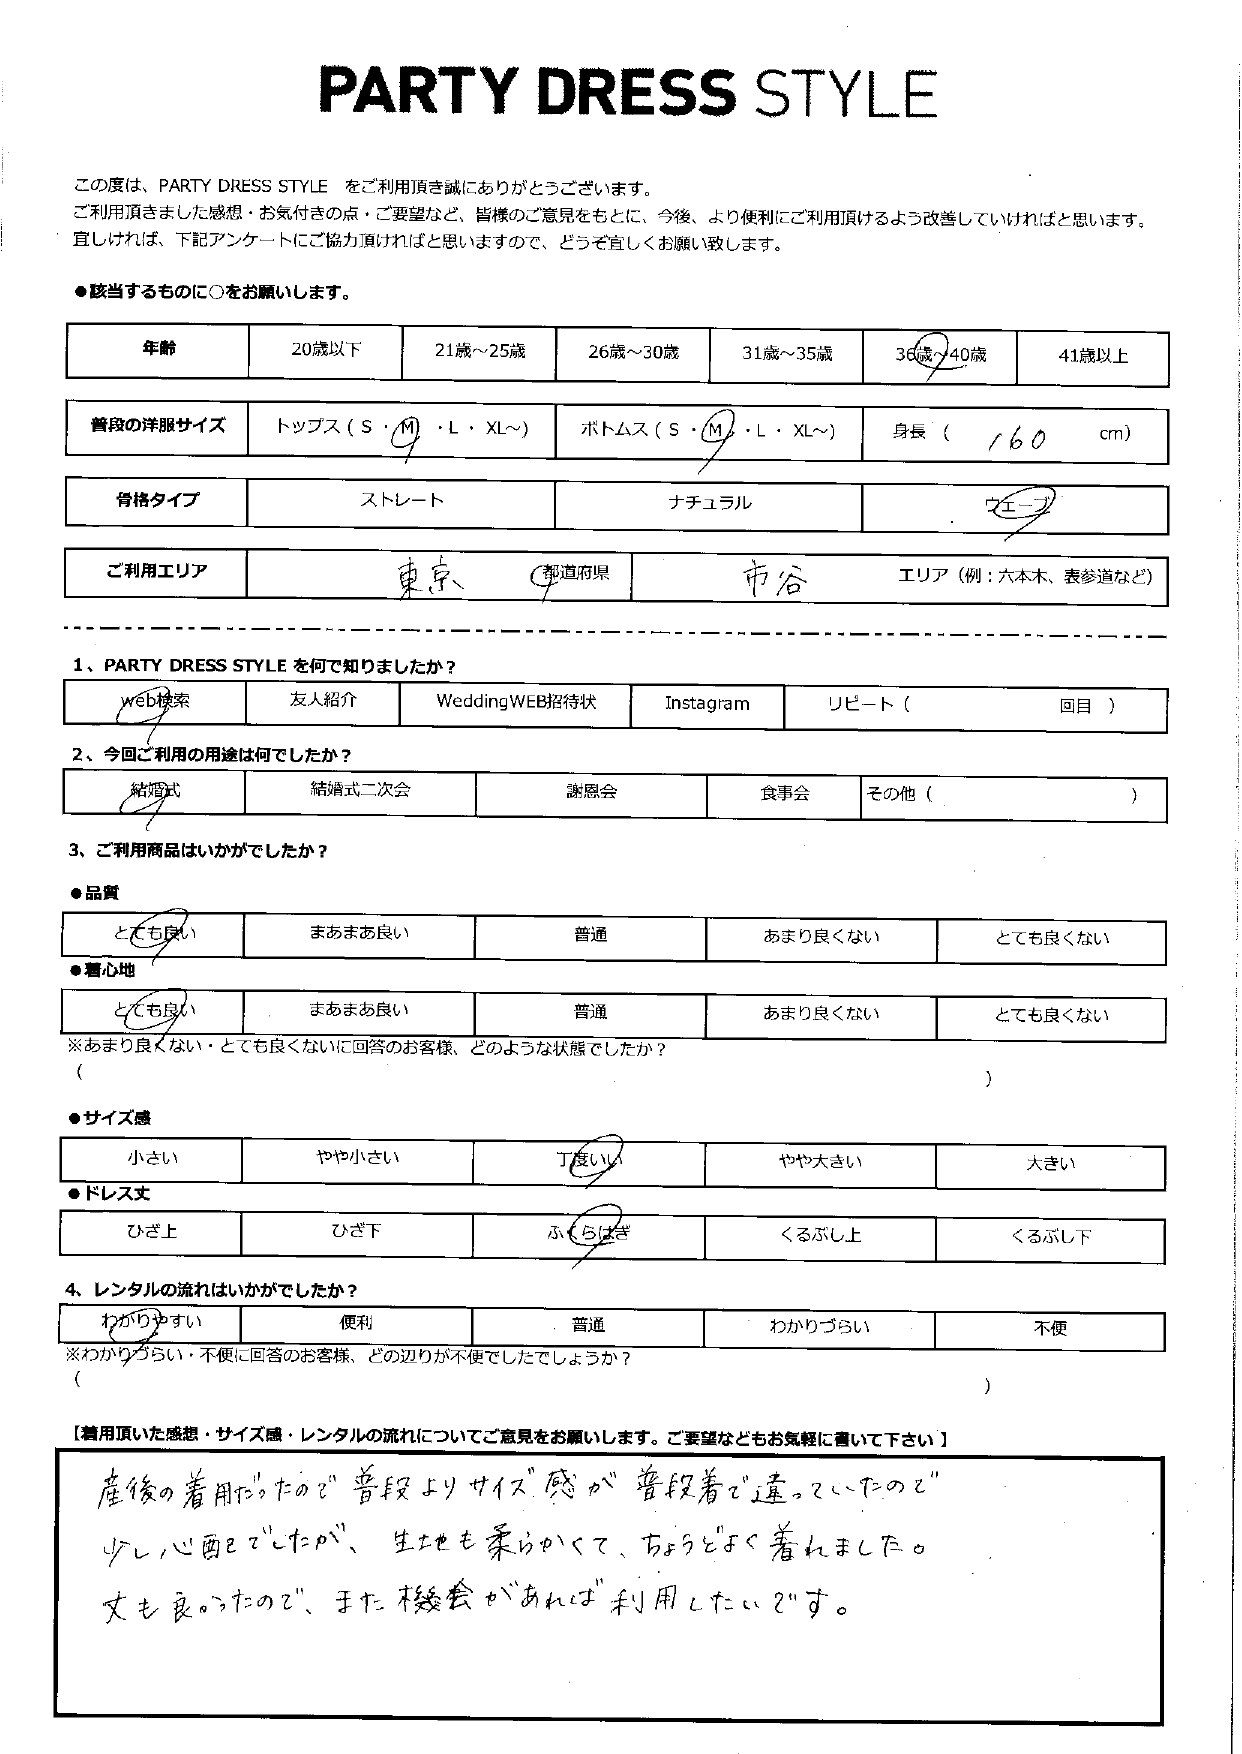 PARTY DRESS STYLE
この度は、PARTY DRESS STYLE をご利用頂き誠にありがとうございます。
ご利用頂きました感想・お気付きの点・ご要望など、皆様のご意見をもとに、今後、より便利にご利用頂けるよう改善していければと思います。
宜しければ、下記アンケートにご協力頂ければと思いますので、どうぞ宜しくお願い致します。
●該当するものに○をお願いします。
年齢 20歳以下 21歳～25歳 26歳～30歳 31歳～35歳 36歳～40歳 41歳以上
普段の洋服サイズ トップス ( S ・ M ・ L ・ XL～) ボトムス ( S ・ M ・ L ・ XL～) 身長 ( 160 cm)
骨格タイプ ストレート ナチュラル ウェーブ
ご利用エリア 東京 都道府県 市谷 エリア（例：六本木、表参道など）
1、PARTY DRESS STYLE を何で知りましたか？
web検索 友人紹介 WeddingWEB招待状 Instagram リピート ( 回目 )
2、今回ご利用の用途は何でしたか？
結婚式 結婚式二次会 謝恩会 食事会 その他 ( )
3、ご利用商品はいかがでしたか？
●品質
とても良い まあまあ良い 普通 あまり良くない とても良くない
●着心地
とても良い まあまあ良い 普通 あまり良くない とても良くない
※あまり良くない・とても良くないに回答のお客様、どのような状態でしたか？
( )
●サイズ感
小さい やや小さい 丁度いい やや大きい 大きい
●ドレス丈
ひざ上 ひざ下 ふくらはぎ くるぶし上 くるぶし下
4、レンタルの流れはいかがでしたか？
わかりやすい 便利 普通 わかりづらい 不便
※わかりづらい・不便に回答のお客様、どの辺りが不便でしたでしょうか？
( )
【着用頂いた感想・サイズ感・レンタルの流れについてご意見をお願いします。ご要望などもお気軽に書いて下さい】
産後の着用だったので普段よりサイズ感が普段着で違っていたので
少し心配でしたが、生地も柔らかくて、ちょうどよく着れました。
丈も良かったので、また機会があれば利用したいです。